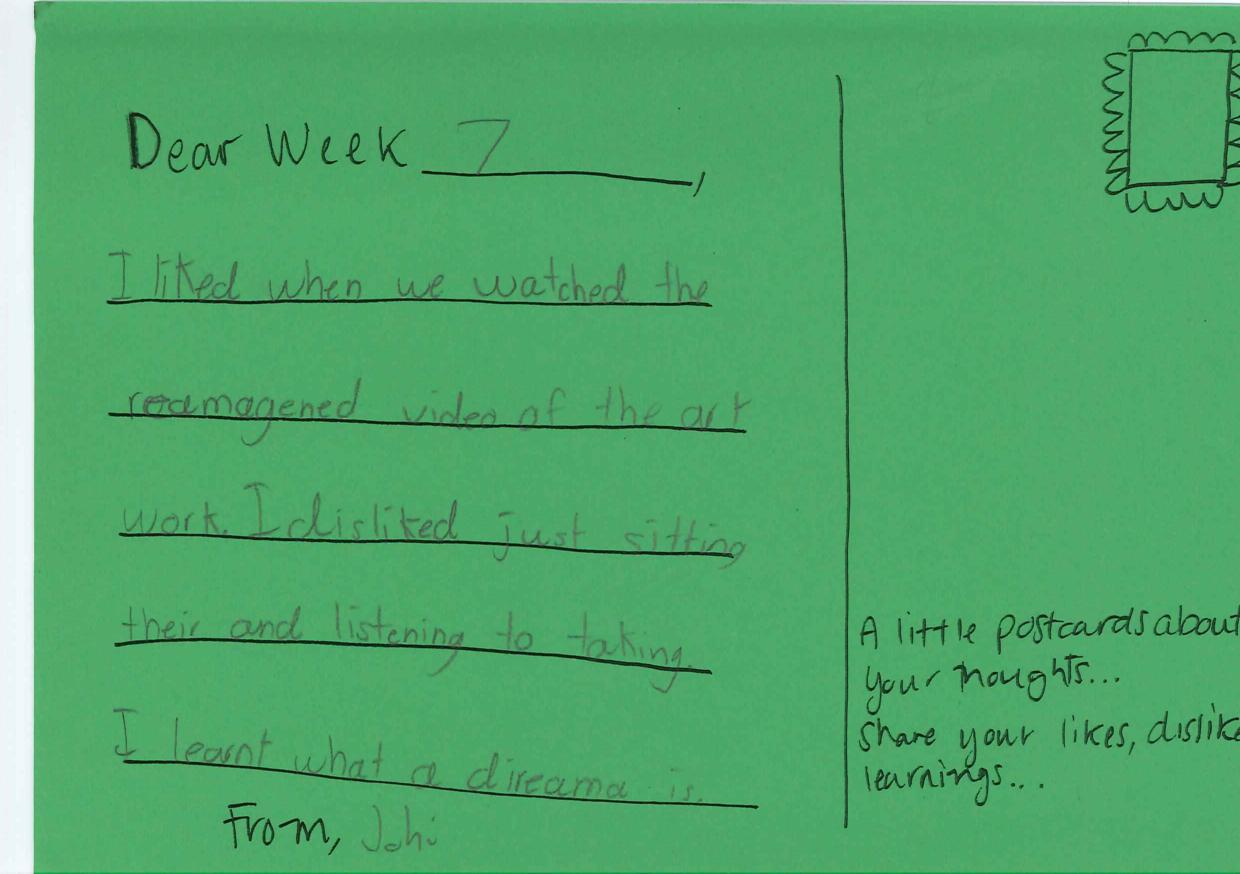 Dear Week 7,
I liked when we watched the
reamagened video of the art
work. I disliked just sitting
their and listening to taking.
I learnt what a direama is.
From,
A little postcards about
your thoughts...
Share your likes, dislike
learnings...